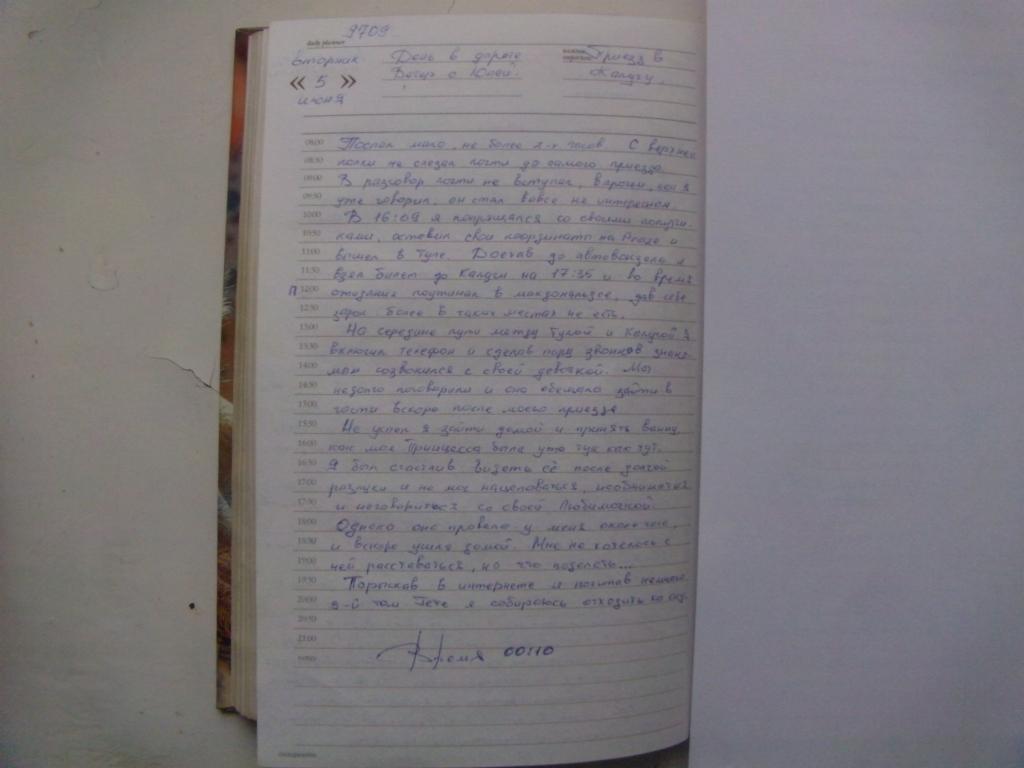 9709
daily planner
Вторник
« 5 »
июня
День в дороге
Вечер с Юлей.
Приезд в
Калугу.
08:00 Поспал мало, не более 2-х часов. С верхней
08:30 полки не слезал почти до самого приезда.
09:00 В разговор почти не вступал, впрочем, как я
09:30 уже говорил, он стал вовсе не интересным.
10:00 В 16:09 я попрощался со своими попутчи-
10:30 ками, оставил свои координаты на и
11:00 вышел в Туле. Доехав до автовокзала я
11:30 взял билет до Калуги на 17:35 и во время
П 12:00 ожидания поужинал в макдональдсе, дав себе
12:30 зарок более в таких местах не есть.
13:00 На середине пути между Тулой и Калугой я
13:30 включил телефон и сделав пару звонков знако-
14:00 мым созвонился с своей девочкой. Мы
14:30 недолго поговорили и она обещала зайти в
15:00 гости вскоре после моего приезда
15:30 Не успел я зайти домой и принять ванну
16:00 как моя Принцесса была уже тут как тут.
16:30 Я был счастлив видеть её после долгой
17:00 разлуки и не мог нацеловаться, наобниматься
17:30 и наговориться со своей Любимочкой.
18:00 Однако она провела у меня около часа,
18:30 и вскоре ушла домой. Мне не хотелось с
19:00 ней расставаться, но что поделать...
19:30 Порыскав в интернете и почитав немного
20:00 2-й том Гёте я собираюсь отходить ко сну.
20:30
21:00
Время 00:10